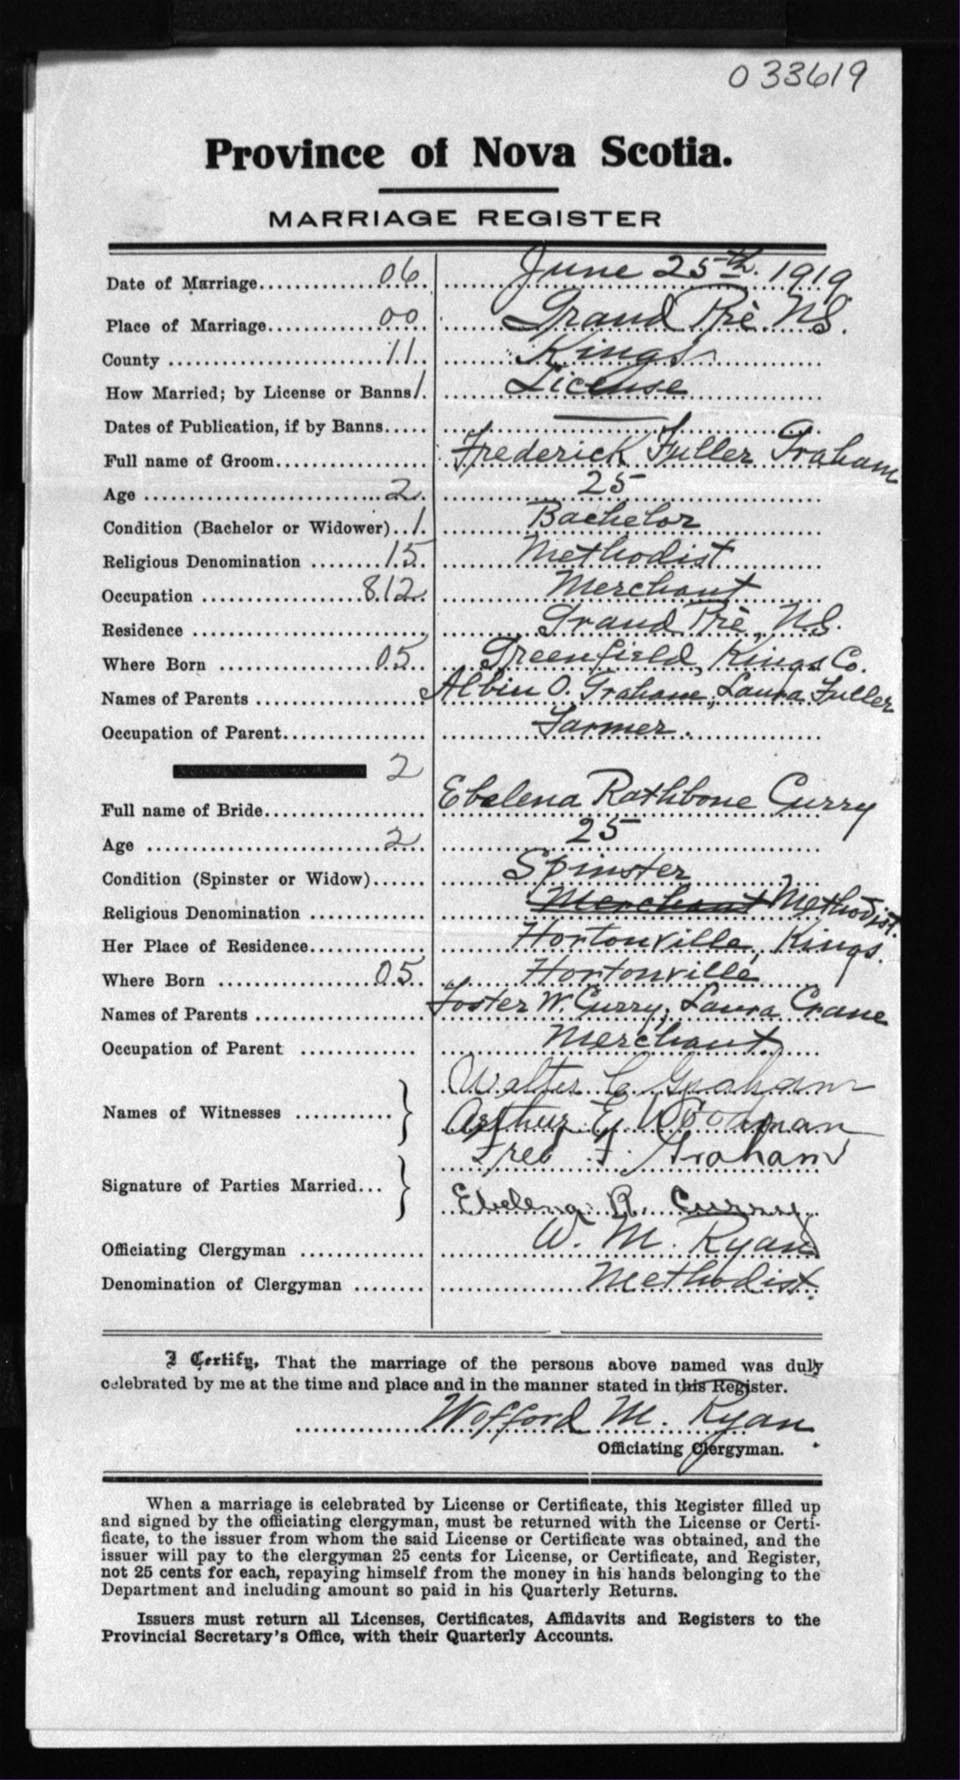 033619
Province of Nova Scotia.
MARRIAGE REGISTER
Date of Marriage 06 June 25th. 1919
Place of Marriage 00 Grand Prè. N.S.
County 11 Kings
How Married; by License or Banns 1 License
Dates of Publication, if by Banns —
Full name of Groom Frederick Fuller Graham
Age 2 25
Condition (Bachelor or Widower) 1 Bachelor
Religious Denomination 15 Methodist
Occupation 812 Merchant
Residence Grand Prè, N.S.
Where Born 05 Greenfield, Kings Co.
Names of Parents Albin O. Graham, Laura Fuller
Occupation of Parent Farmer.
2
Full name of Bride Ebelena Rathbone Curry
Age 2 25
Condition (Spinster or Widow) Spinster
Religious Denomination Merchant Methodist.
Her Place of Residence Hortonville, Kings.
Where Born 05 Hortonville
Names of Parents Foster W. Curry, Laura Crane
Occupation of Parent Merchant
Walter C. Graham
Names of Witnesses }
Arthur E. Woodman
Fred F. Graham
Signature of Parties Married... }
Ebelena R. Curry
Officiating Clergyman W. M. Ryan
Denomination of Clergyman Methodist.
I Certify, That the marriage of the persons above named was duly
celebrated by me at the time and place and in the manner stated in this Register.
Wofford M. Ryan
Officiating Clergyman.
When a marriage is celebrated by License or Certificate, this Register filled up
and signed by the officiating clergyman, must be returned with the License or Certi-
ficate, to the issuer from whom the said License or Certificate was obtained, and the
issuer will pay to the clergyman 25 cents for License, or Certificate, and Register,
not 25 cents for each, repaying himself from the money in his hands belonging to the
Department and including amount so paid in his Quarterly Returns.
Issuers must return all Licenses, Certificates, Affidavits and Registers to the
Provincial Secretary's Office, with their Quarterly Accounts.